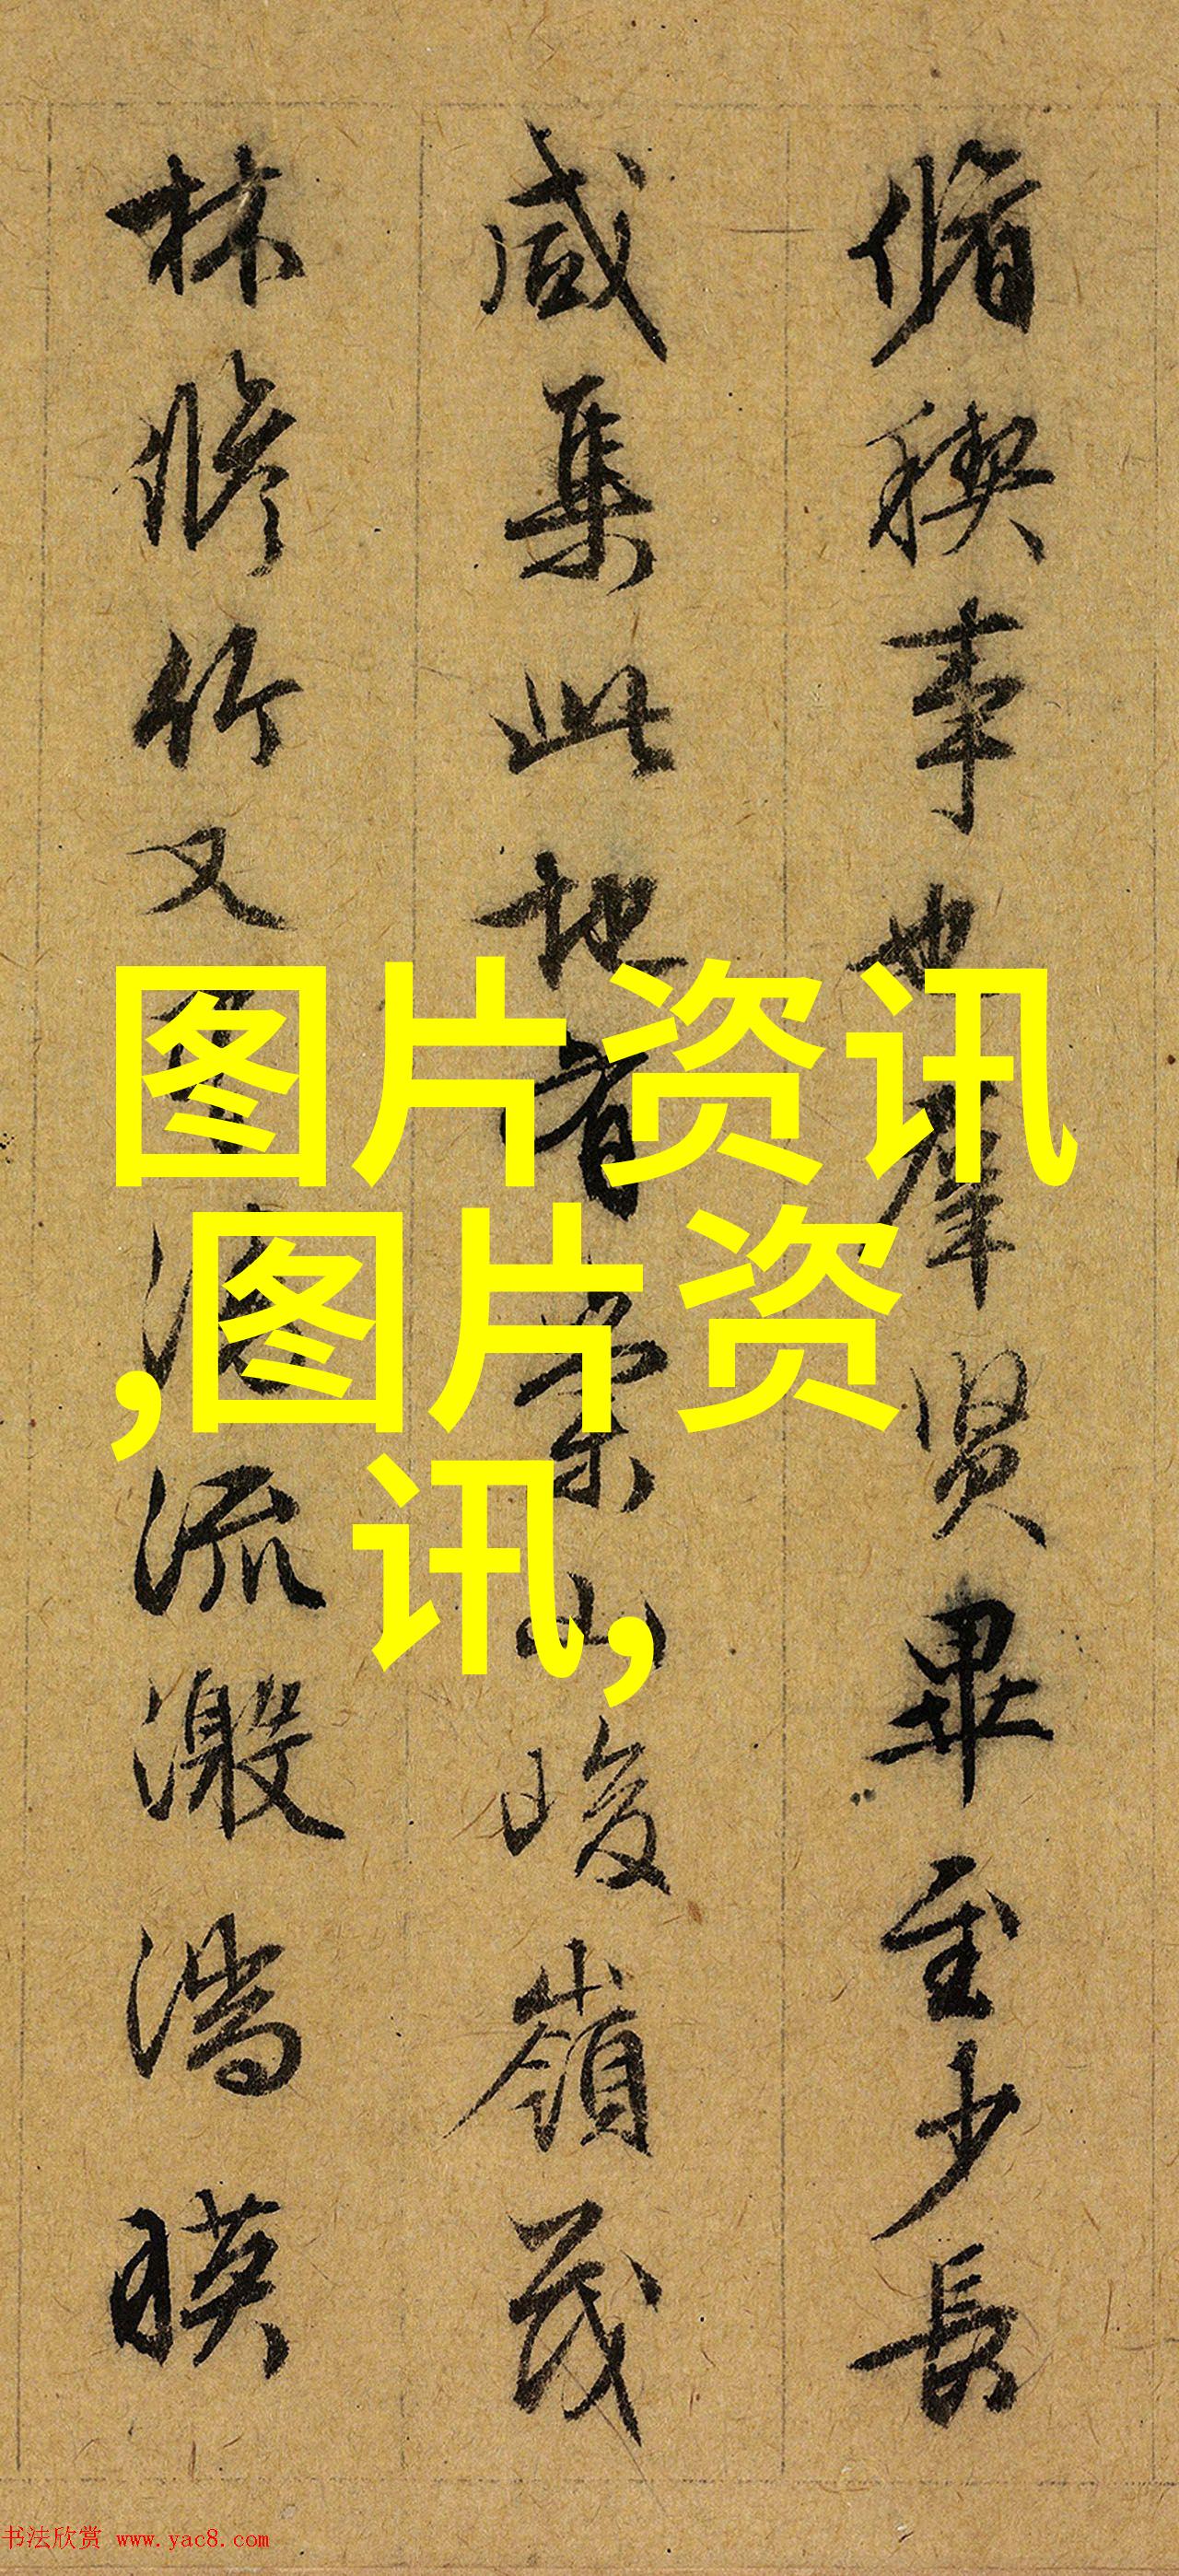 脩稧事也羣賢畢至少長
咸集此地有崇山峻領茂
林脩竹又有清流激湍暎
图片资讯
,图片资
讯,
书法欣赏 www.yac8.com